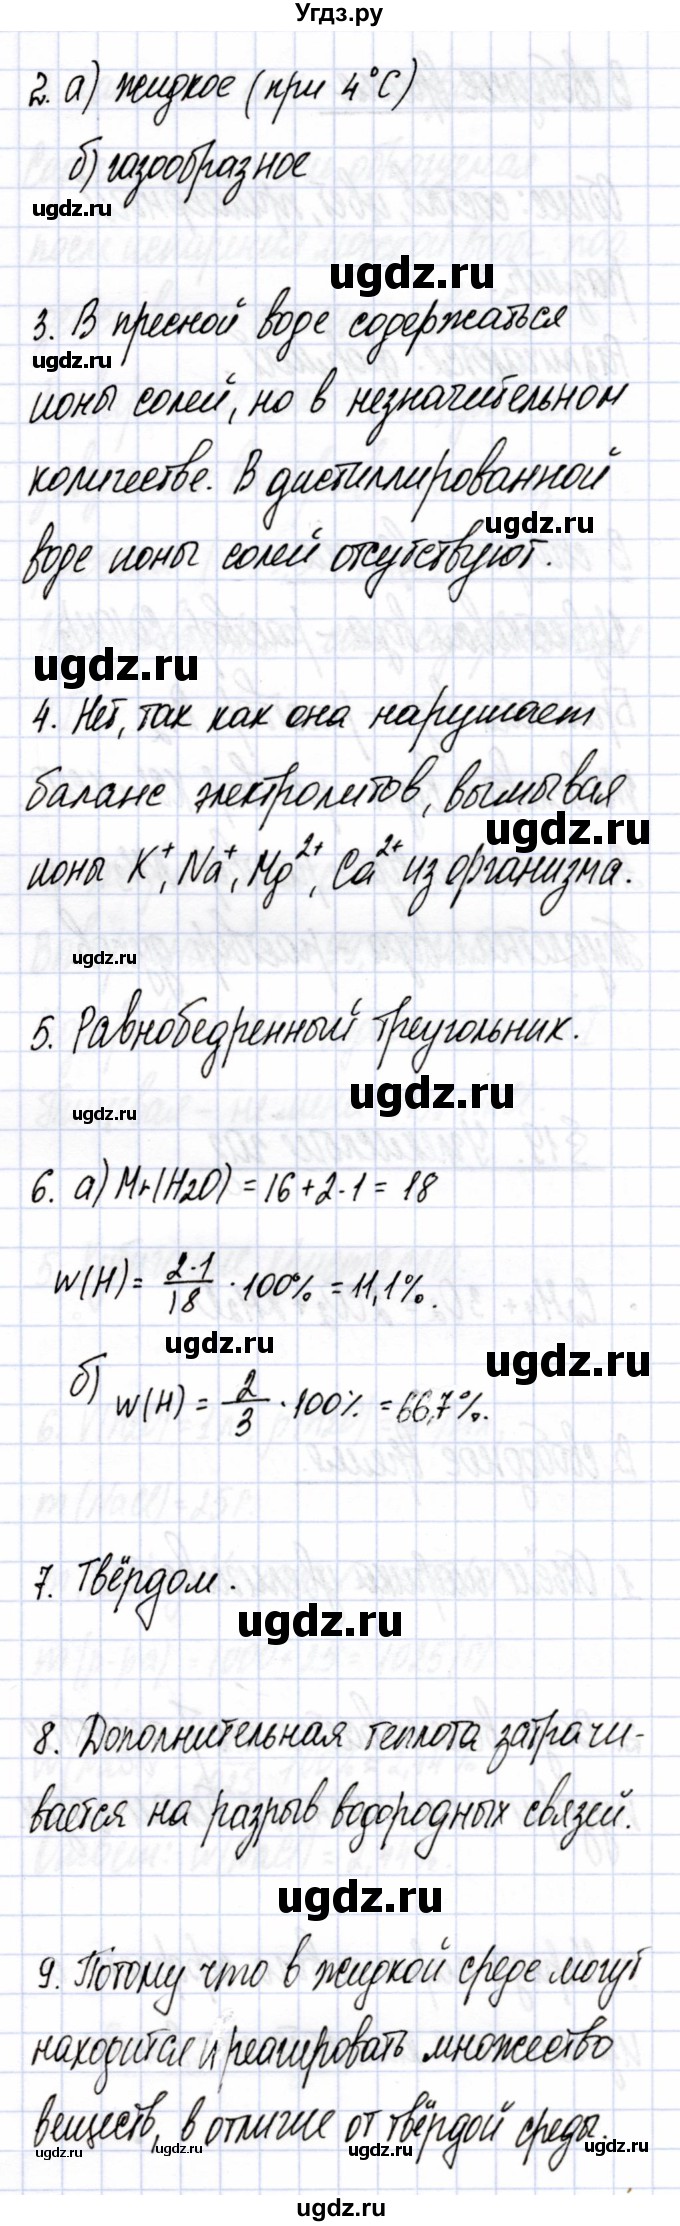 Угдз.ру
2. а) жидкое (при 4°С)
б) газообразное
ugdz.ru
ugdz.ru
3. В пресной воде содержаться
ugdz.ru
ионы солей, но в незначительном
количестве. В дистиллированной
ugdz.ru
воде ионы солей отсутствуют.
ugdz.ru
4. Нет, так как она нарушает
баланс электролитов, вымывая
ugdz.ru
ионы K⁺, Na⁺, Mg²⁺, Ca²⁺ из организма.
ugdz.ru
5. Равнобедренный треугольник.
ugdz.ru
ugdz.ru
6. а) Mr(H₂O) = 16 + 2·1 = 18
W(H) = 2·1/18 · 100% = 11,1%.
ugdz.ru
ugdz.ru
б) W(H) = 2/3 · 100% = 66,7%.
7. Твёрдом.
ugdz.ru
8. Дополнительная теплота затрачи-
вается на разрыв водородных связей.
ugdz.ru
9. Потому что в жидкой среде могут
находится и реагировать множество
веществ, в отличие от твёрдой среды.
ugdz.ru
ugdz.ru
ugdz.ru
ugdz.ru
ugdz.ru